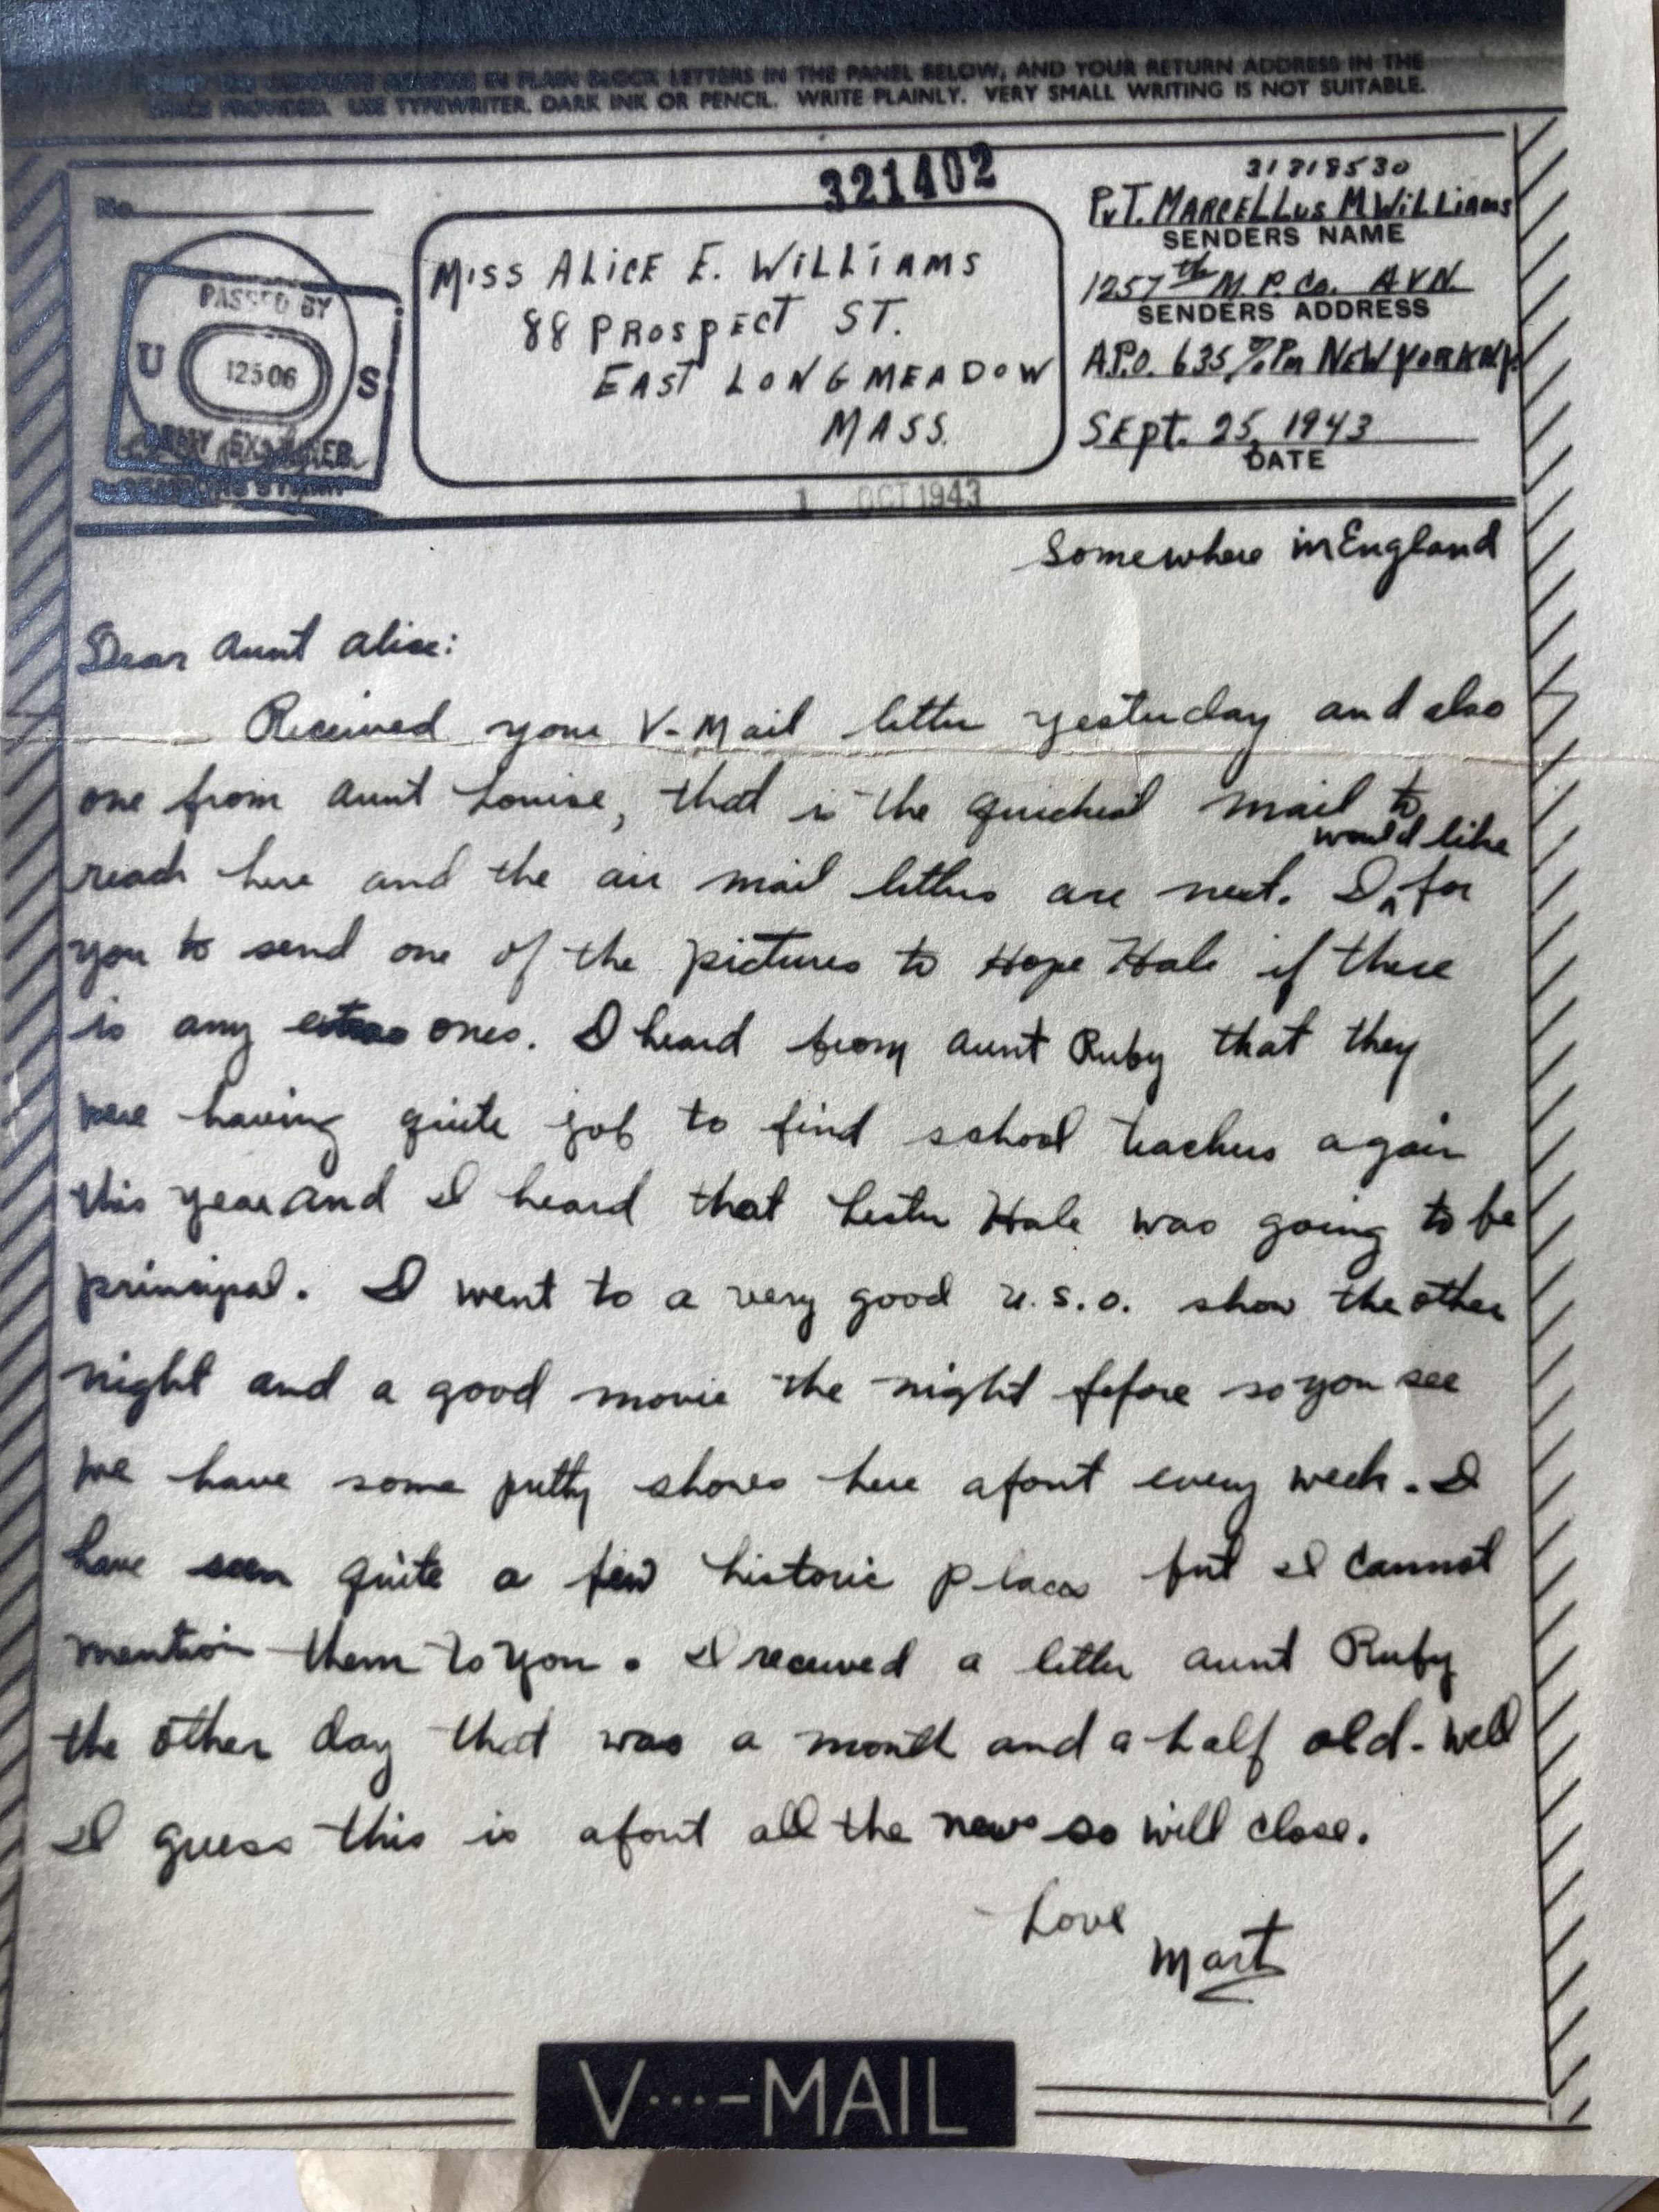 PRINT THE COMPLETE ADDRESS IN PLAIN BLOCK LETTERS IN THE PANEL BELOW, AND YOUR RETURN ADDRESS IN THE
SPACE PROVIDED. USE TYPEWRITER, DARK INK OR PENCIL. WRITE PLAINLY. VERY SMALL WRITING IS NOT SUITABLE.
No.
321402
PASSED BY
U S
12506
ARMY EXAMINER
MISS ALICE E. WILLIAMS
88 PROSPECT ST.
EAST LONGMEADOW
MASS.
PVT. MARCELLUS M WILLIAMS
SENDERS NAME
1257th M. P. Co. AVN.
SENDERS ADDRESS
A.P.O. 635 % PM NEW YORK N.Y.
SEPT. 25, 1943
DATE
1 OCT 1943
Somewhere in England
Dear Aunt Alice:
Received your V-Mail letter yesterday and also
one from Aunt Louise, that is the quickest mail to
reach here and the air mail letters are next. I would like for
you to send one of the pictures to Hope Hale if there
is any extra ones. I heard from Aunt Ruby that they
were having quite job to find school teachers again
this year and I heard that Lester Hale was going to be
principal. I went to a very good U.S.O. show the other
night and a good movie the night before so you see
we have some pretty shows here about every week. I
have seen quite a few historic places but I cannot
mention them to you. I received a letter aunt Ruby
the other day that was a month and a half old. Well
I guess this is about all the news so will close.
Love
Mart
V...-MAIL